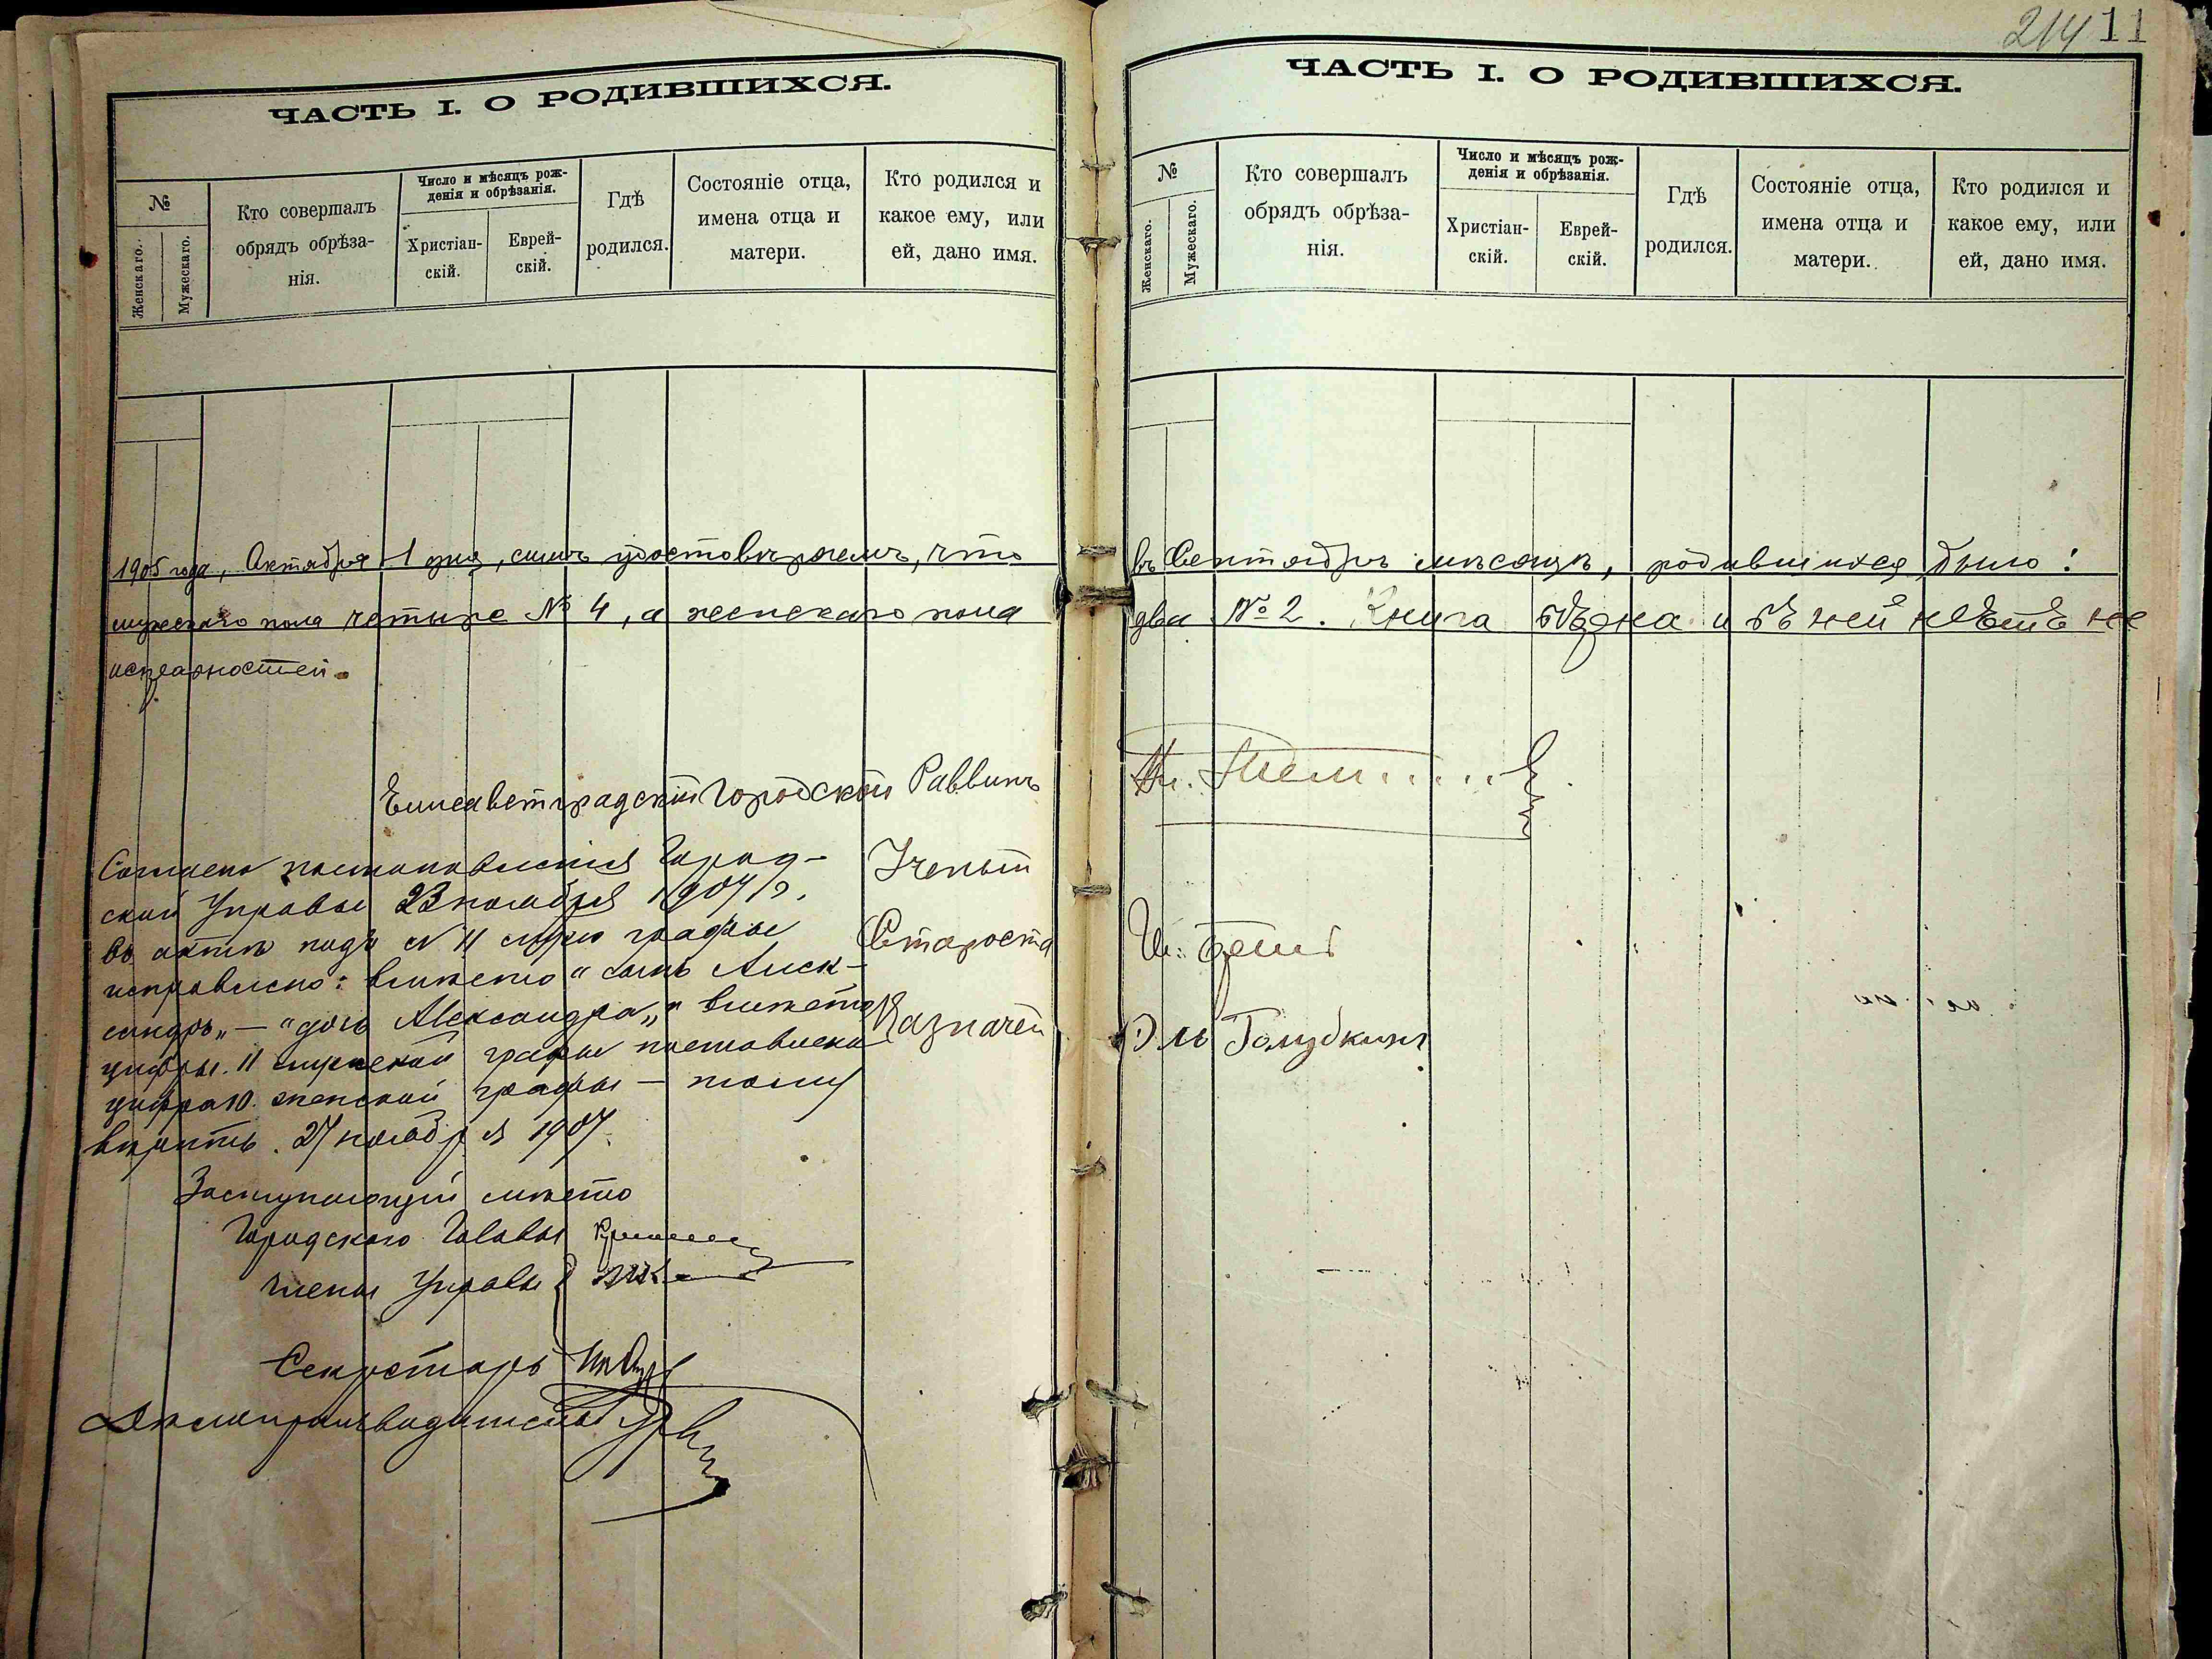 214 11
ЧАСТЬ I. О РОДИВШИХСЯ.
№
Женскаго.
Мужескаго.
Кто совершалъ
обрядъ обрѣза-
нія.
Число и мѣсяцъ рож-
денія и обрѣзанія.
Христіан-
скій.
Еврей-
скій.
Гдѣ
родился.
Состояніе отца,
имена отца и
матери.
Кто родился и
какое ему, или
ей, дано имя.
1905 года, Октября 1 дня, симъ удостовѣряемъ, что
мужескаго пола четыре № 4, а женскаго пола
исправностей.
Елисаветградскій Городской Раввинъ
Ученый
Староста
Казначей
Согласно постановленія Город-
ской Управы 23 ноября 1907 г.
въ актѣ подъ № 11 муж. графы
исправлено: вмѣсто "сынъ Алек-
сандръ" — "дочь Александра", вмѣсто
цифры 11 мужской графы поставлена
цифра 10 женской графы — тому
вѣрить. 27 ноября 1907.
Заступающій мѣсто
Городского Головы
Члены Управы
Секретарь
Дѣлопроизводитель
ЧАСТЬ I. О РОДИВШИХСЯ.
№
Женскаго.
Мужескаго.
Кто совершалъ
обрядъ обрѣза-
нія.
Число и мѣсяцъ рож-
денія и обрѣзанія.
Христіан-
скій.
Еврей-
скій.
Гдѣ
родился.
Состояніе отца,
имена отца и
матери.
Кто родился и
какое ему, или
ей, дано имя.
въ Сентябрѣ мѣсяцѣ, родившихся было:
два № 2. Книга вѣрна и въ ней нѣтъ не
Голубкинъ